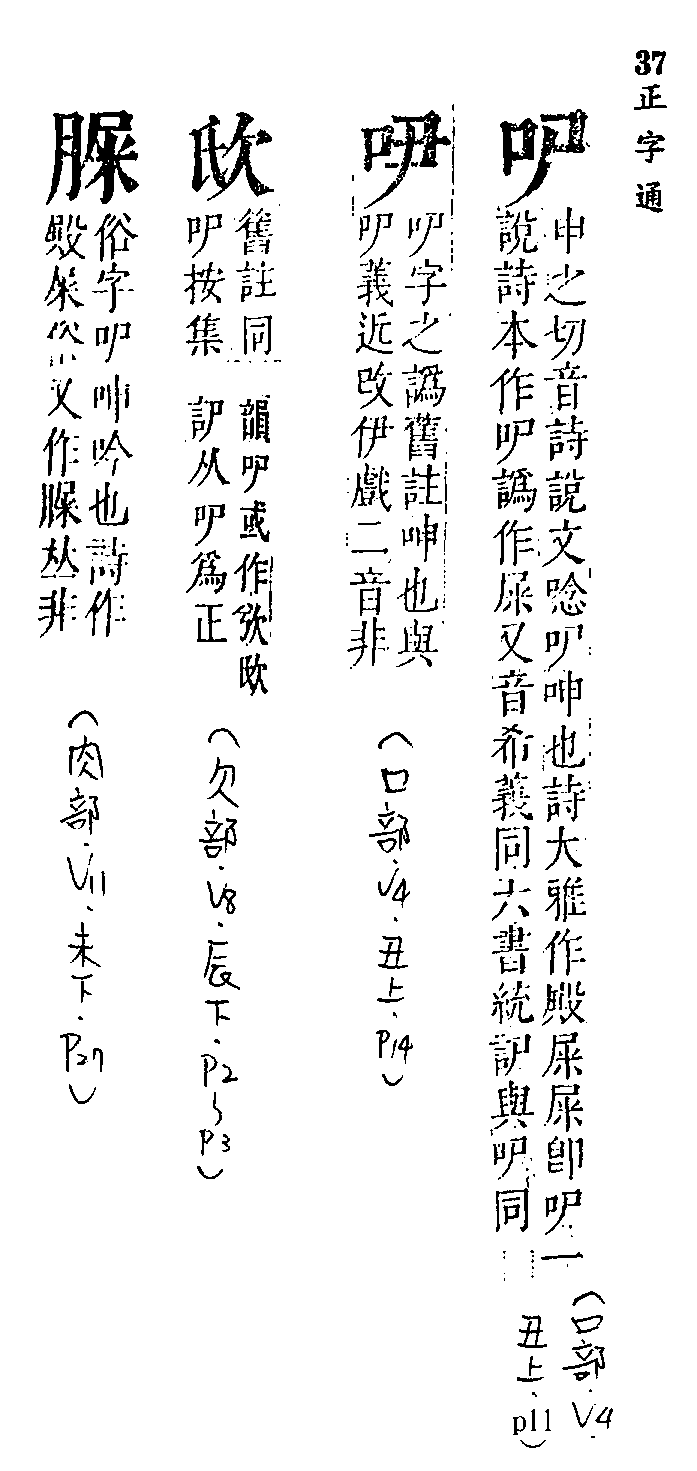 37正字通
吚
申之切音詩說文唸吚呻也詩大雅作殿屎屎卽吚一
說詩本作吚譌作屎又音希義同六書統訵與吚同
(口部.V4
丑上.p11)
吚字之譌舊註呻也與
吚義近改伊戲二音非
(口部.V4.丑上.P14)
舊註同
吚按集
韻吚或作欥㰞
訵从吚爲正
(欠部.V8.辰下.P2~P3)
俗字吚呻吟也詩作
殿屎俗又作𦟂𠀤非
(肉部.V11.未下.P27)